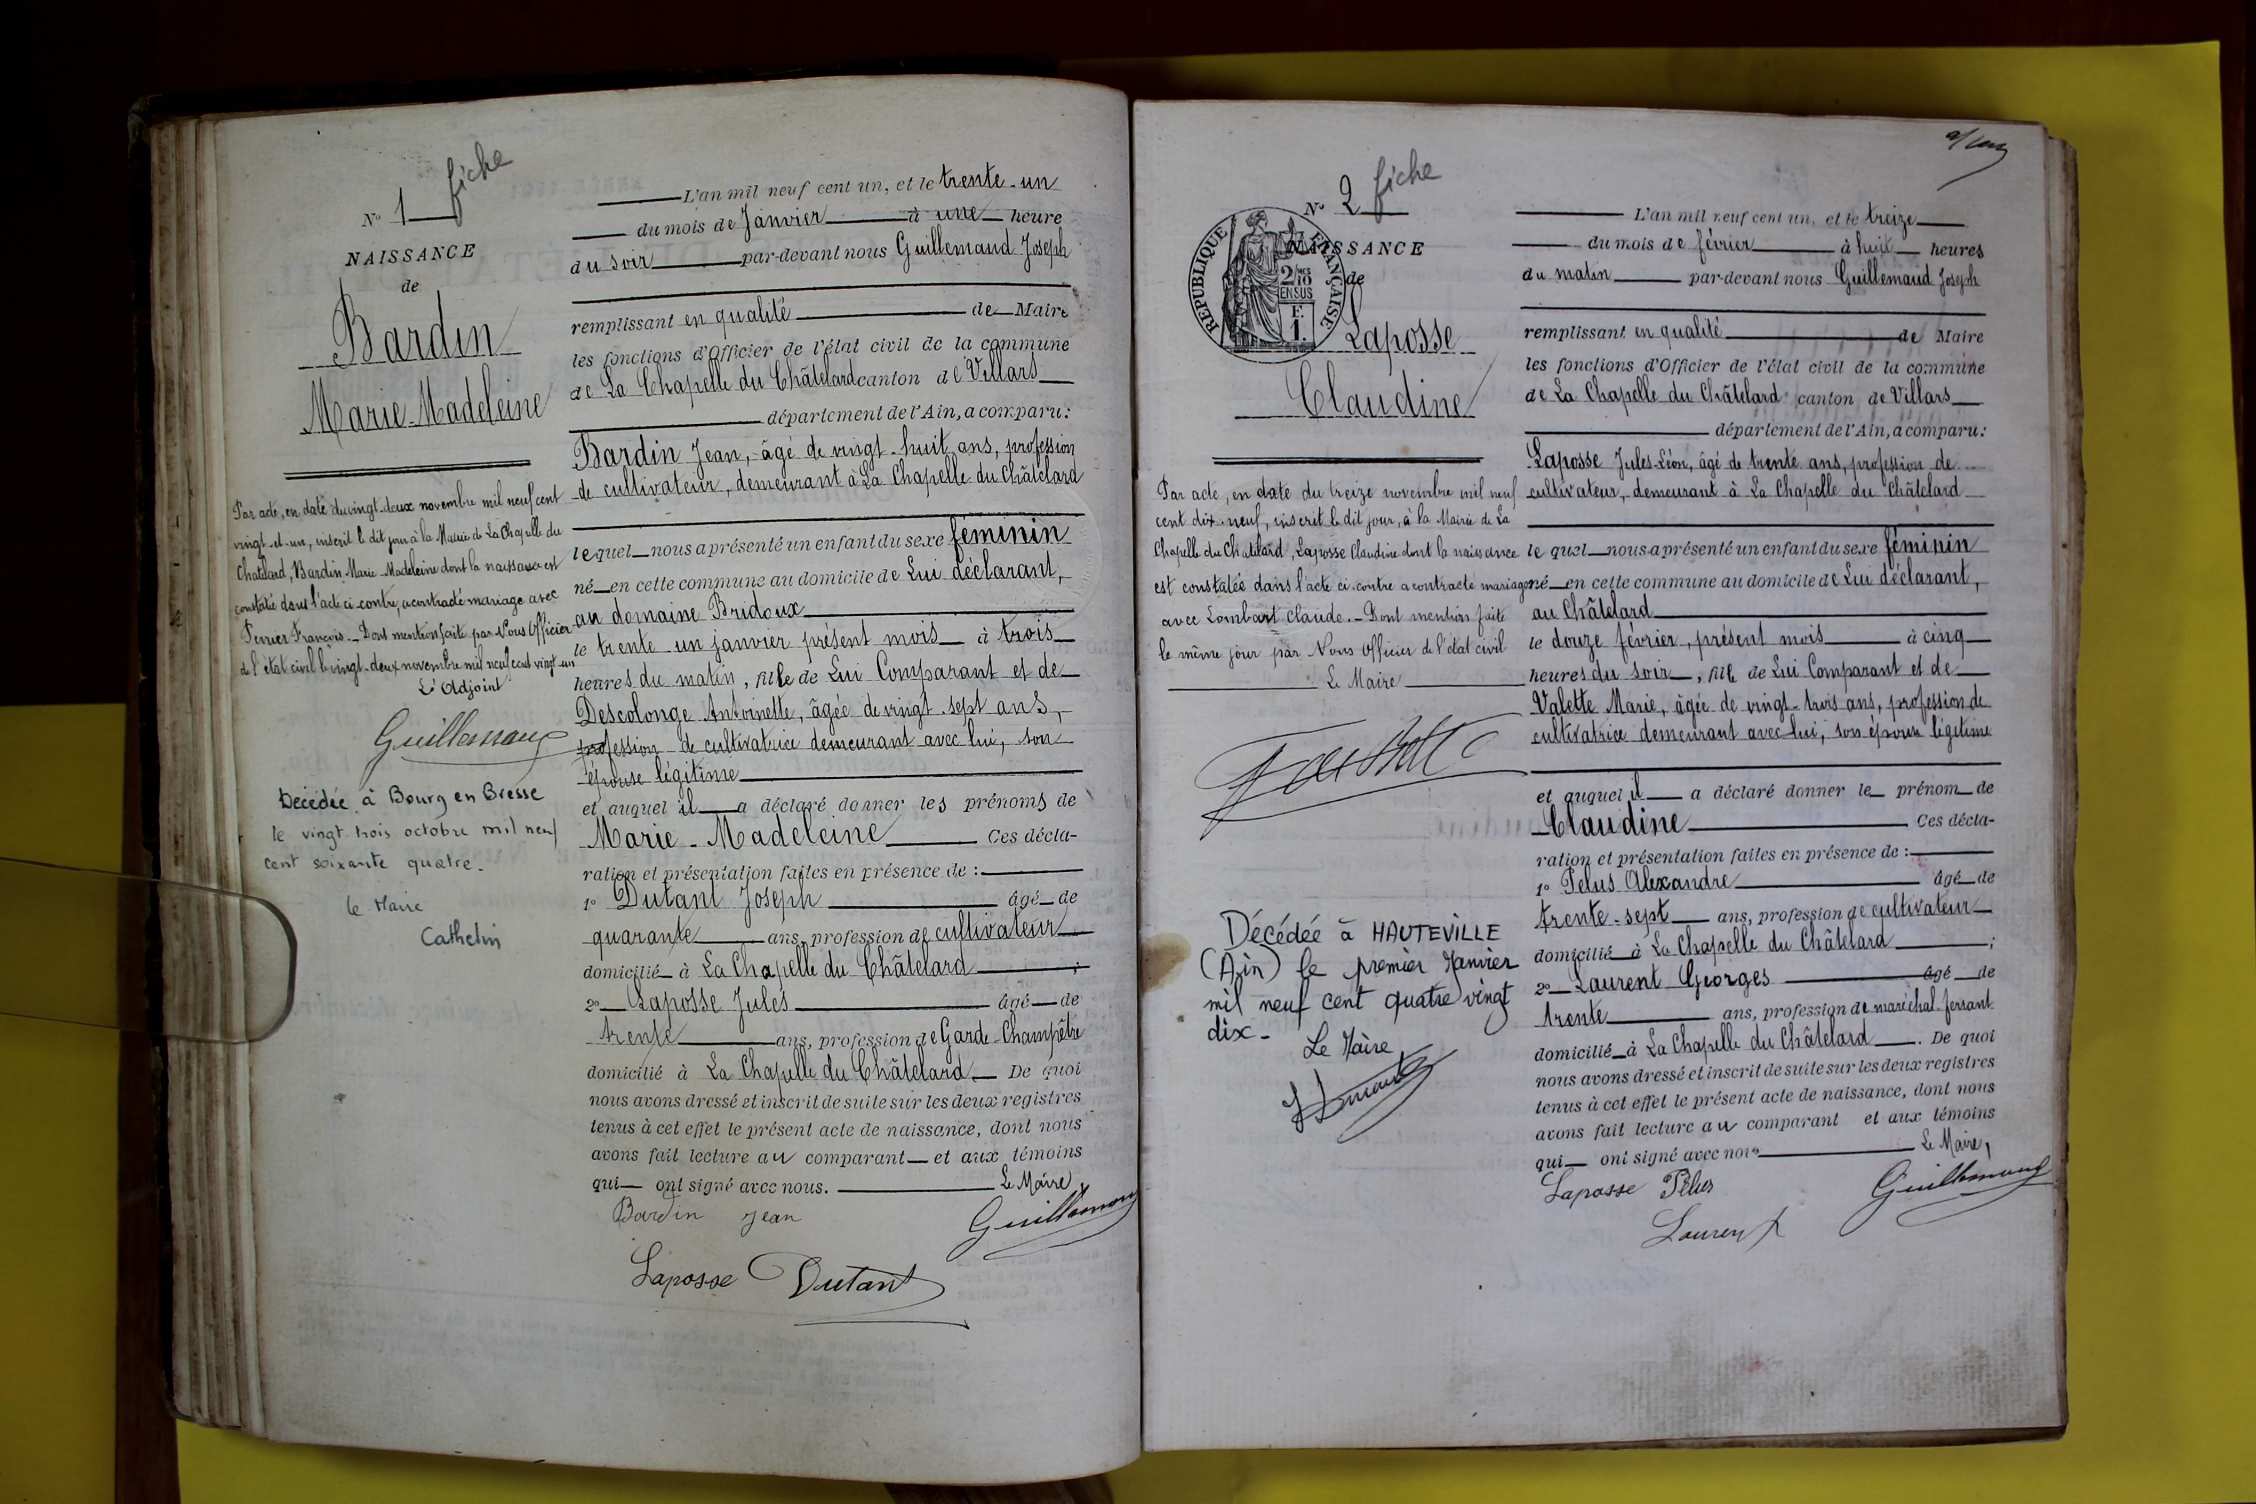 N° 1 fiche
NAISSANCE
de
Bardin
Marie-Madeleine
Par acte, en date du vingt-deux novembre mil neuf cent
vingt-et-un, inscrit le dit jour à la Mairie de La Chapelle du
Chatelard, Bardin Marie-Madeleine dont la naissance est
constatée dans l'acte ci-contre, a contracté mariage avec
François. _ Dont mention faite par Nous Officier
de l'état civil le vingt-deux novembre mil neuf cent vingt un
L'Adjoint
Guillemaud
Décédée à Bourg en Bresse
le vingt trois octobre mil neuf
cent soixante quatre.
le Maire
Cathelin
L'an mil neuf cent un, et le trente-un
du mois de Janvier à une heure
du soir par-devant nous Guillemaud Joseph
remplissant en qualité de Maire
les fonctions d'Officier de l'état civil de la commune
de La Chapelle du Châtelard canton de Villars
département de l'Ain, a comparu:
Bardin Jean, âgé de vingt-huit ans, profession
de cultivateur, demeurant à La Chapelle du Châtelard
lequel nous a présenté un enfant du sexe féminin
né en cette commune au domicile de Lui déclarant,
au domaine Bridoux
le trente-un janvier présent mois à trois
heures du matin, fille de Lui Comparant et de
Descolonge Antoinette, âgée de vingt-sept ans,
profession de cultivatrice demeurant avec lui, son
épouse légitime
et auquel il a déclaré donner les prénoms de
Marie-Madeleine Ces décla-
ration et présentation faites en présence de :
1° Dutant Joseph âgé de
quarante ans, profession de cultivateur
domicilié à La Chapelle du Châtelard ;
2° Laposse Jules âgé de
trente ans, profession de Garde-Champêtre
domicilié à La Chapelle du Châtelard De quoi
nous avons dressé et inscrit de suite sur les deux registres
tenus à cet effet le présent acte de naissance, dont nous
avons fait lecture au comparant et aux témoins
qui ont signé avec nous. Le Maire,
Bardin Jean Guillemaud
Laposse Dutant
N° 2 fiche
REPUBLIQUE FRANÇAISE
2/10 EN SUS
F. 1.
NAISSANCE
de
Laposse
Claudine
Par acte, en date du treize novembre mil neuf
cent dix-neuf, inscrit le dit jour, à la Mairie de La
Chapelle du Chatelard, Laposse Claudine dont la naissance
est constatée dans l'acte ci-contre a contracté mariage
avec Lombart Claude. _ Dont mention faite
le même jour par Nous Officier de l'état civil
Le Maire
Décédée à HAUTEVILLE
(Ain) le premier Janvier
mil neuf cent quatre vingt
dix -
Le Maire
L'an mil neuf cent un, et le treize
du mois de février à huit heures
du matin par-devant nous Guillemaud Joseph
remplissant en qualité de Maire
les fonctions d'Officier de l'état civil de la commune
de La Chapelle du Châtelard canton de Villars
département de l'Ain, a comparu:
Laposse Jules-Léon, âgé de trente ans, profession de
cultivateur, demeurant à La Chapelle du Châtelard
lequel nous a présenté un enfant du sexe féminin
né en cette commune au domicile de Lui déclarant,
au Châtelard
le douze février, présent mois à cinq
heures du soir, fille de Lui Comparant et de
Valette Marie, âgée de vingt-trois ans, profession de
cultivatrice demeurant avec lui, son épouse légitime
et auquel il a déclaré donner le prénom de
Claudine Ces décla-
ration et présentation faites en présence de :
1° Pelus Alexandre âgé de
trente-sept ans, profession de cultivateur
domicilié à La Chapelle du Châtelard ;
2° Laurent Georges âgé de
trente ans, profession de maréchal-ferrant
domicilié à La Chapelle du Châtelard. De quoi
nous avons dressé et inscrit de suite sur les deux registres
tenus à cet effet le présent acte de naissance, dont nous
avons fait lecture au comparant et aux témoins
qui ont signé avec nous Le Maire,
Laposse Pelus Guillemaud
Laurent